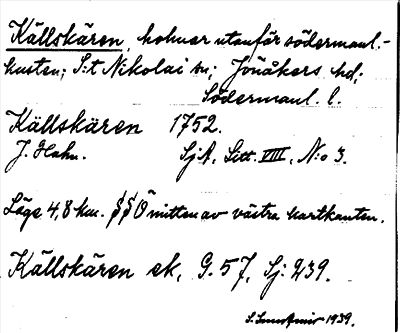 Källskären, holmar utanför södermanl.-
kusten; S:t Nikolai sn; Jönåkers hd;
Södermanl. l.
Källskären 1752.
J. Hahn. SjA, Litt. VIII, N:o 3.
Läge 4,8 km. SSÖ mitten av västra kartkanten.
Källskären ek. G. 57, Sj: 239.
1939.